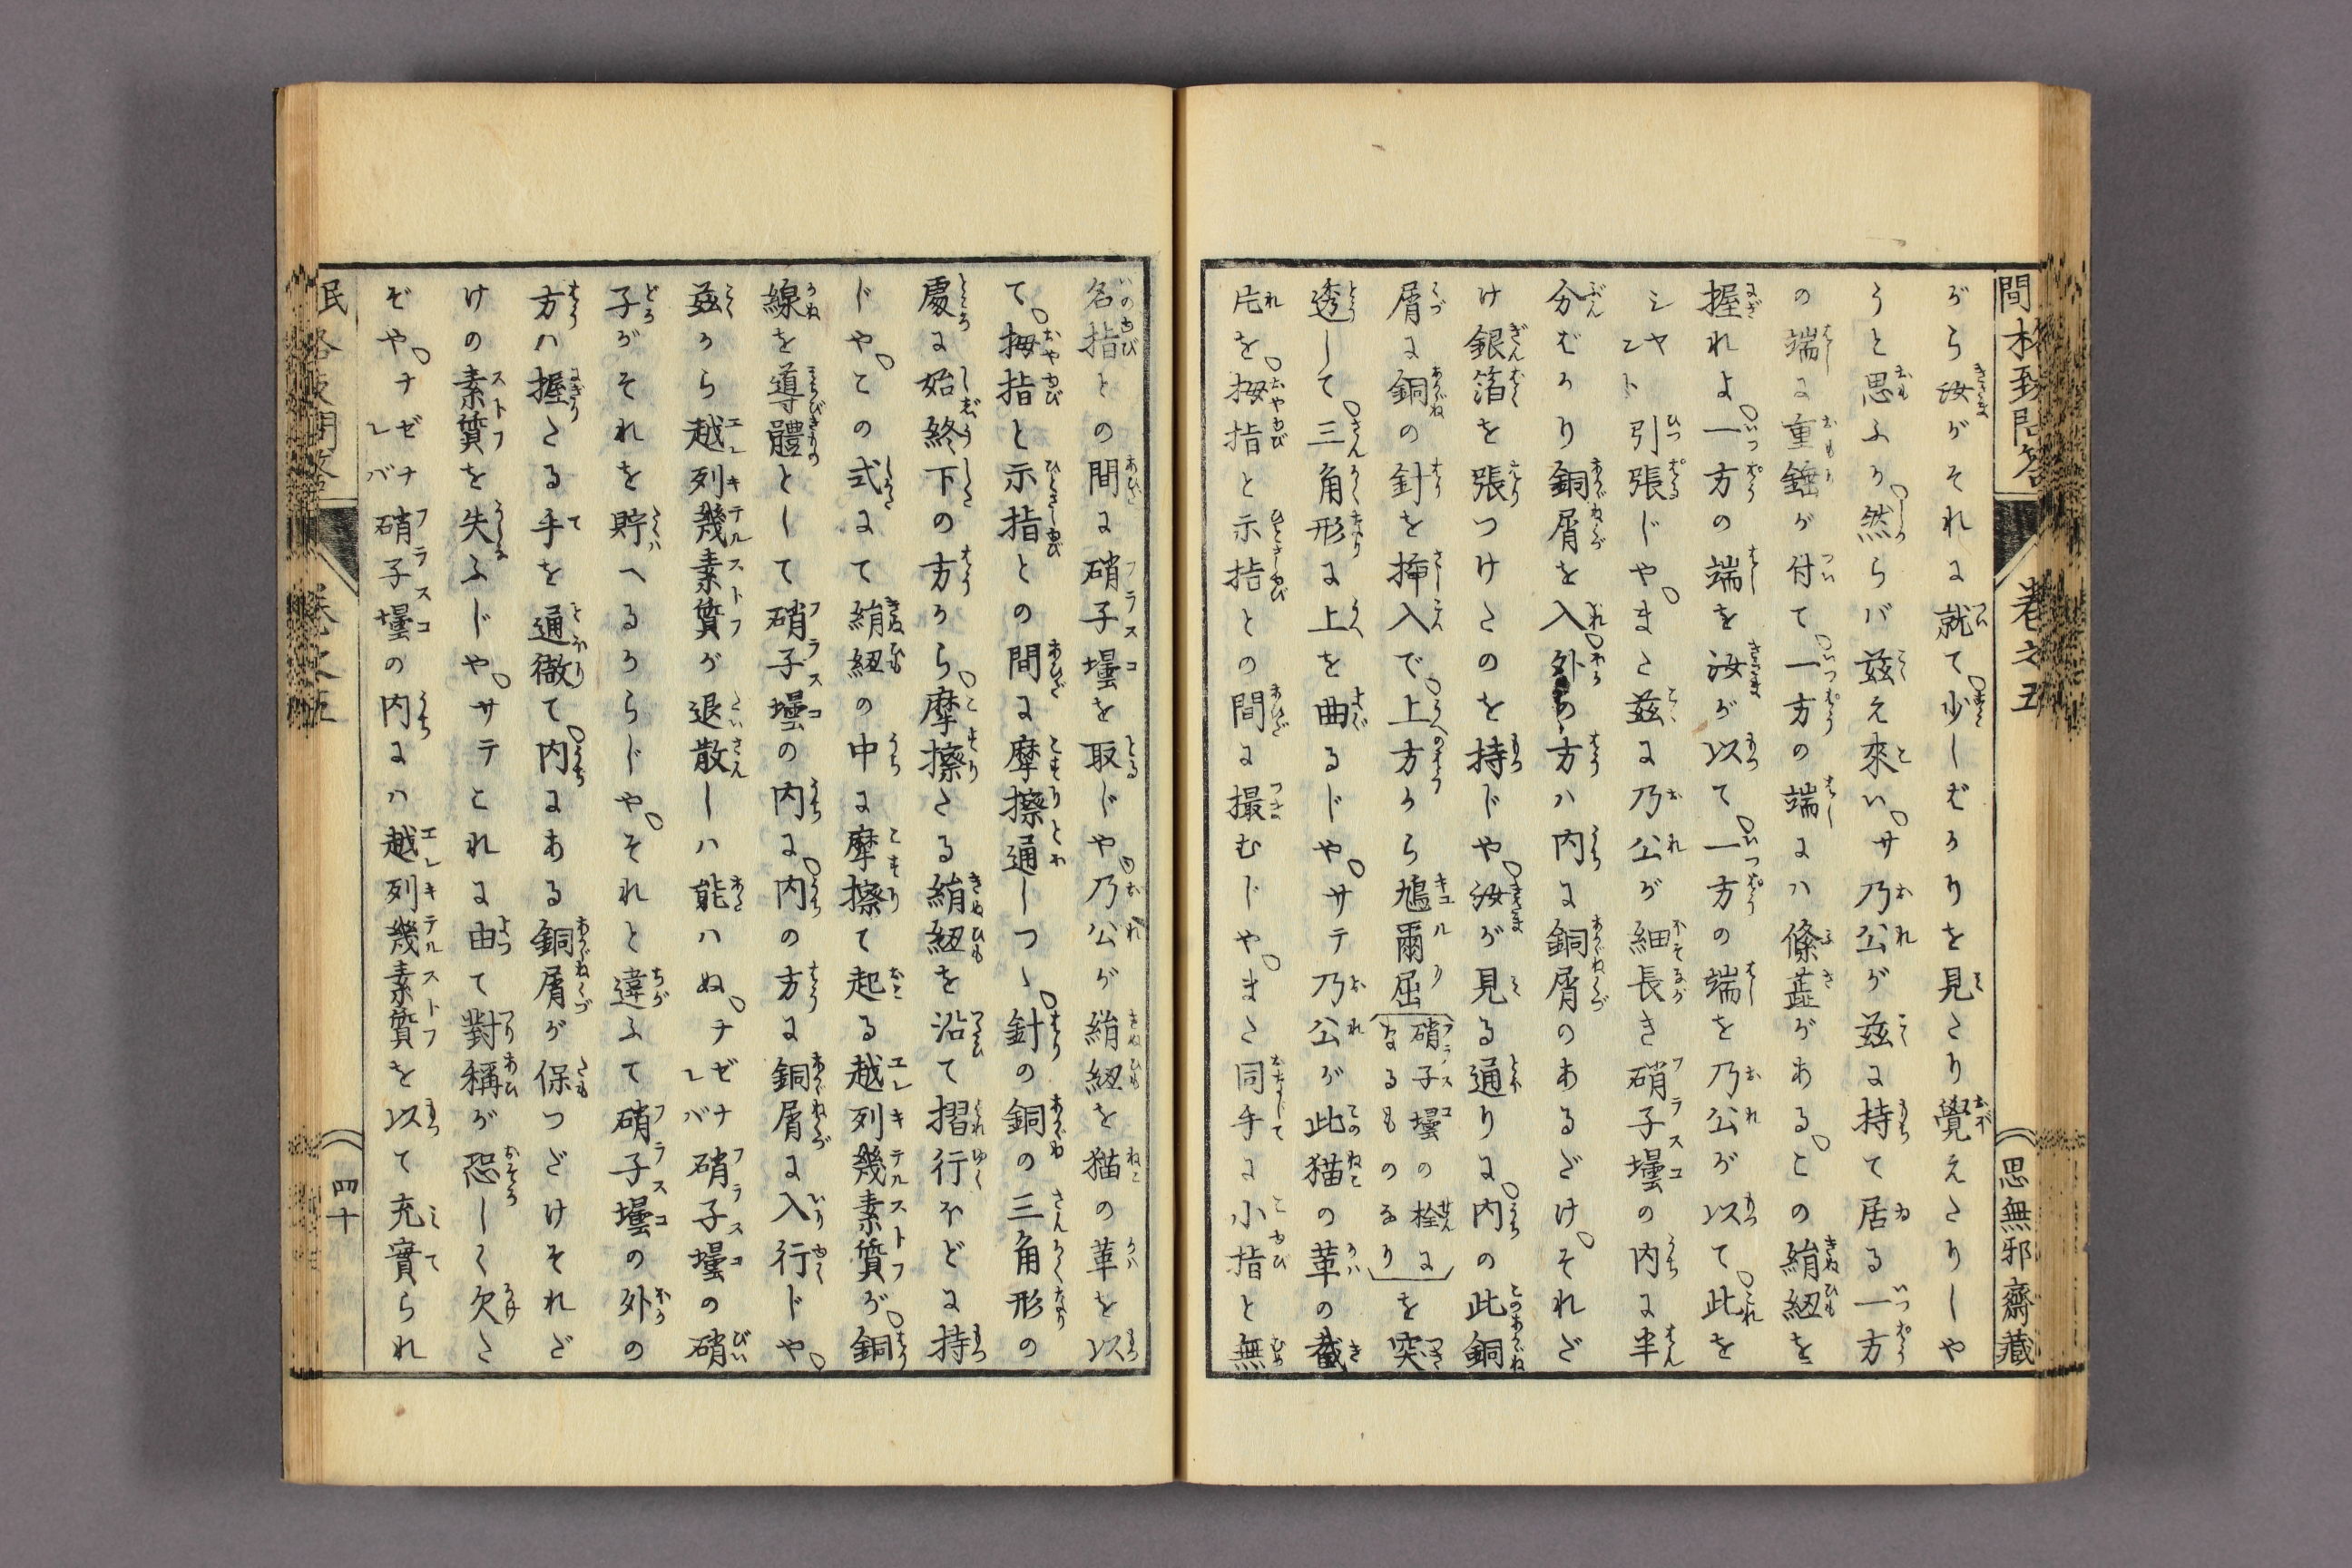 がら汝がそれに就て少しばかりを見たり覺えたりしや
うと思ふか然らバ茲え來いサ乃公が茲に持て居る一方
の端に重錘が付て一方の端にハ條蓝があるこの絹紐を
握れよ一方の端を汝が以て一方の端を乃公が以て此を
シヤント引張じやまた茲に乃公が細長き硝子壜の内に半
分ばかり銅屑を入外の方ハ内に銅屑のあるだけそれだ
け銀箔を張つけたのを持ドや汝が見る通りに内の此銅
屑に銅の針を挿入で上方から鳩爾屈硝子壜の栓になるものなりを突
透して三角形に上を曲るじやサテ乃公が此猫の革の截
片を拇指と示指との間に撮むじやまた同手に小指と無
名指との間に硝子壜を取じや乃公が絹紐を猫の革を以
て拇指と示指との間に摩擦通しつゝ針の銅の三角形の
處に始終下の方から摩擦たる絹紐を沿て摺行ほどに持
じやこの式にて絹紐の中に摩擦て起る越列幾素質が銅
線を導體として硝子壜の内に内の方に銅屑に入行ドや
茲から越列幾素質が退散しハ能ハぬナゼナレバ硝子壜の硝
子がそれを貯へるからじやそれと違ふて硝子壜の外の
方ハ握たる手を通徹て内にある銅屑が保つだけそれだ
けの素質を失ふじやサテこれに由て對稱が恐しく欠た
ぞやナゼナレバ硝子壜の内にハ越列幾素質を以て充實られ
卷之五
思無邪齋藏
四十